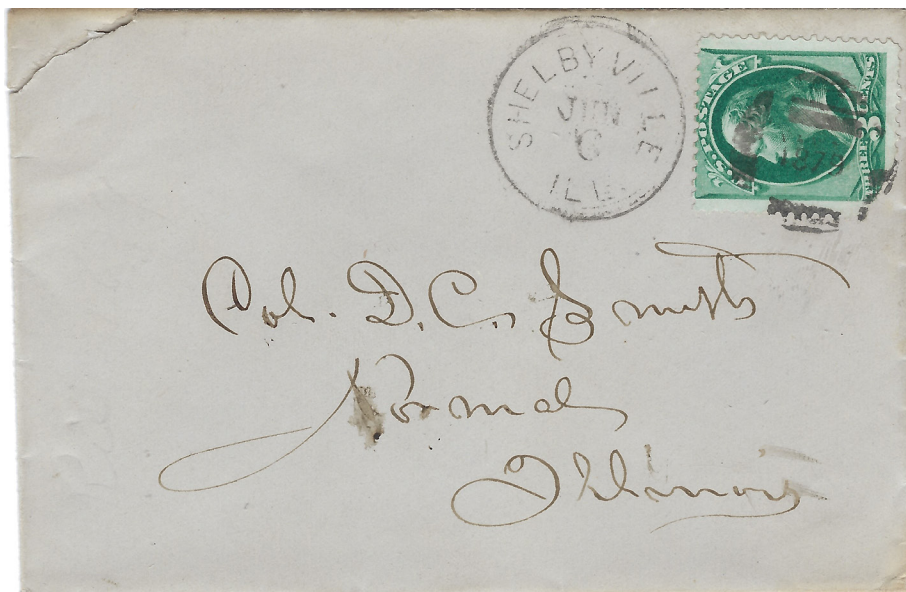 SHELBYVILLE
JUN
6
ILL.
U.S. POSTAGE
THREE 3 CENTS
Col. D. C. Smith
Normal
Illinois